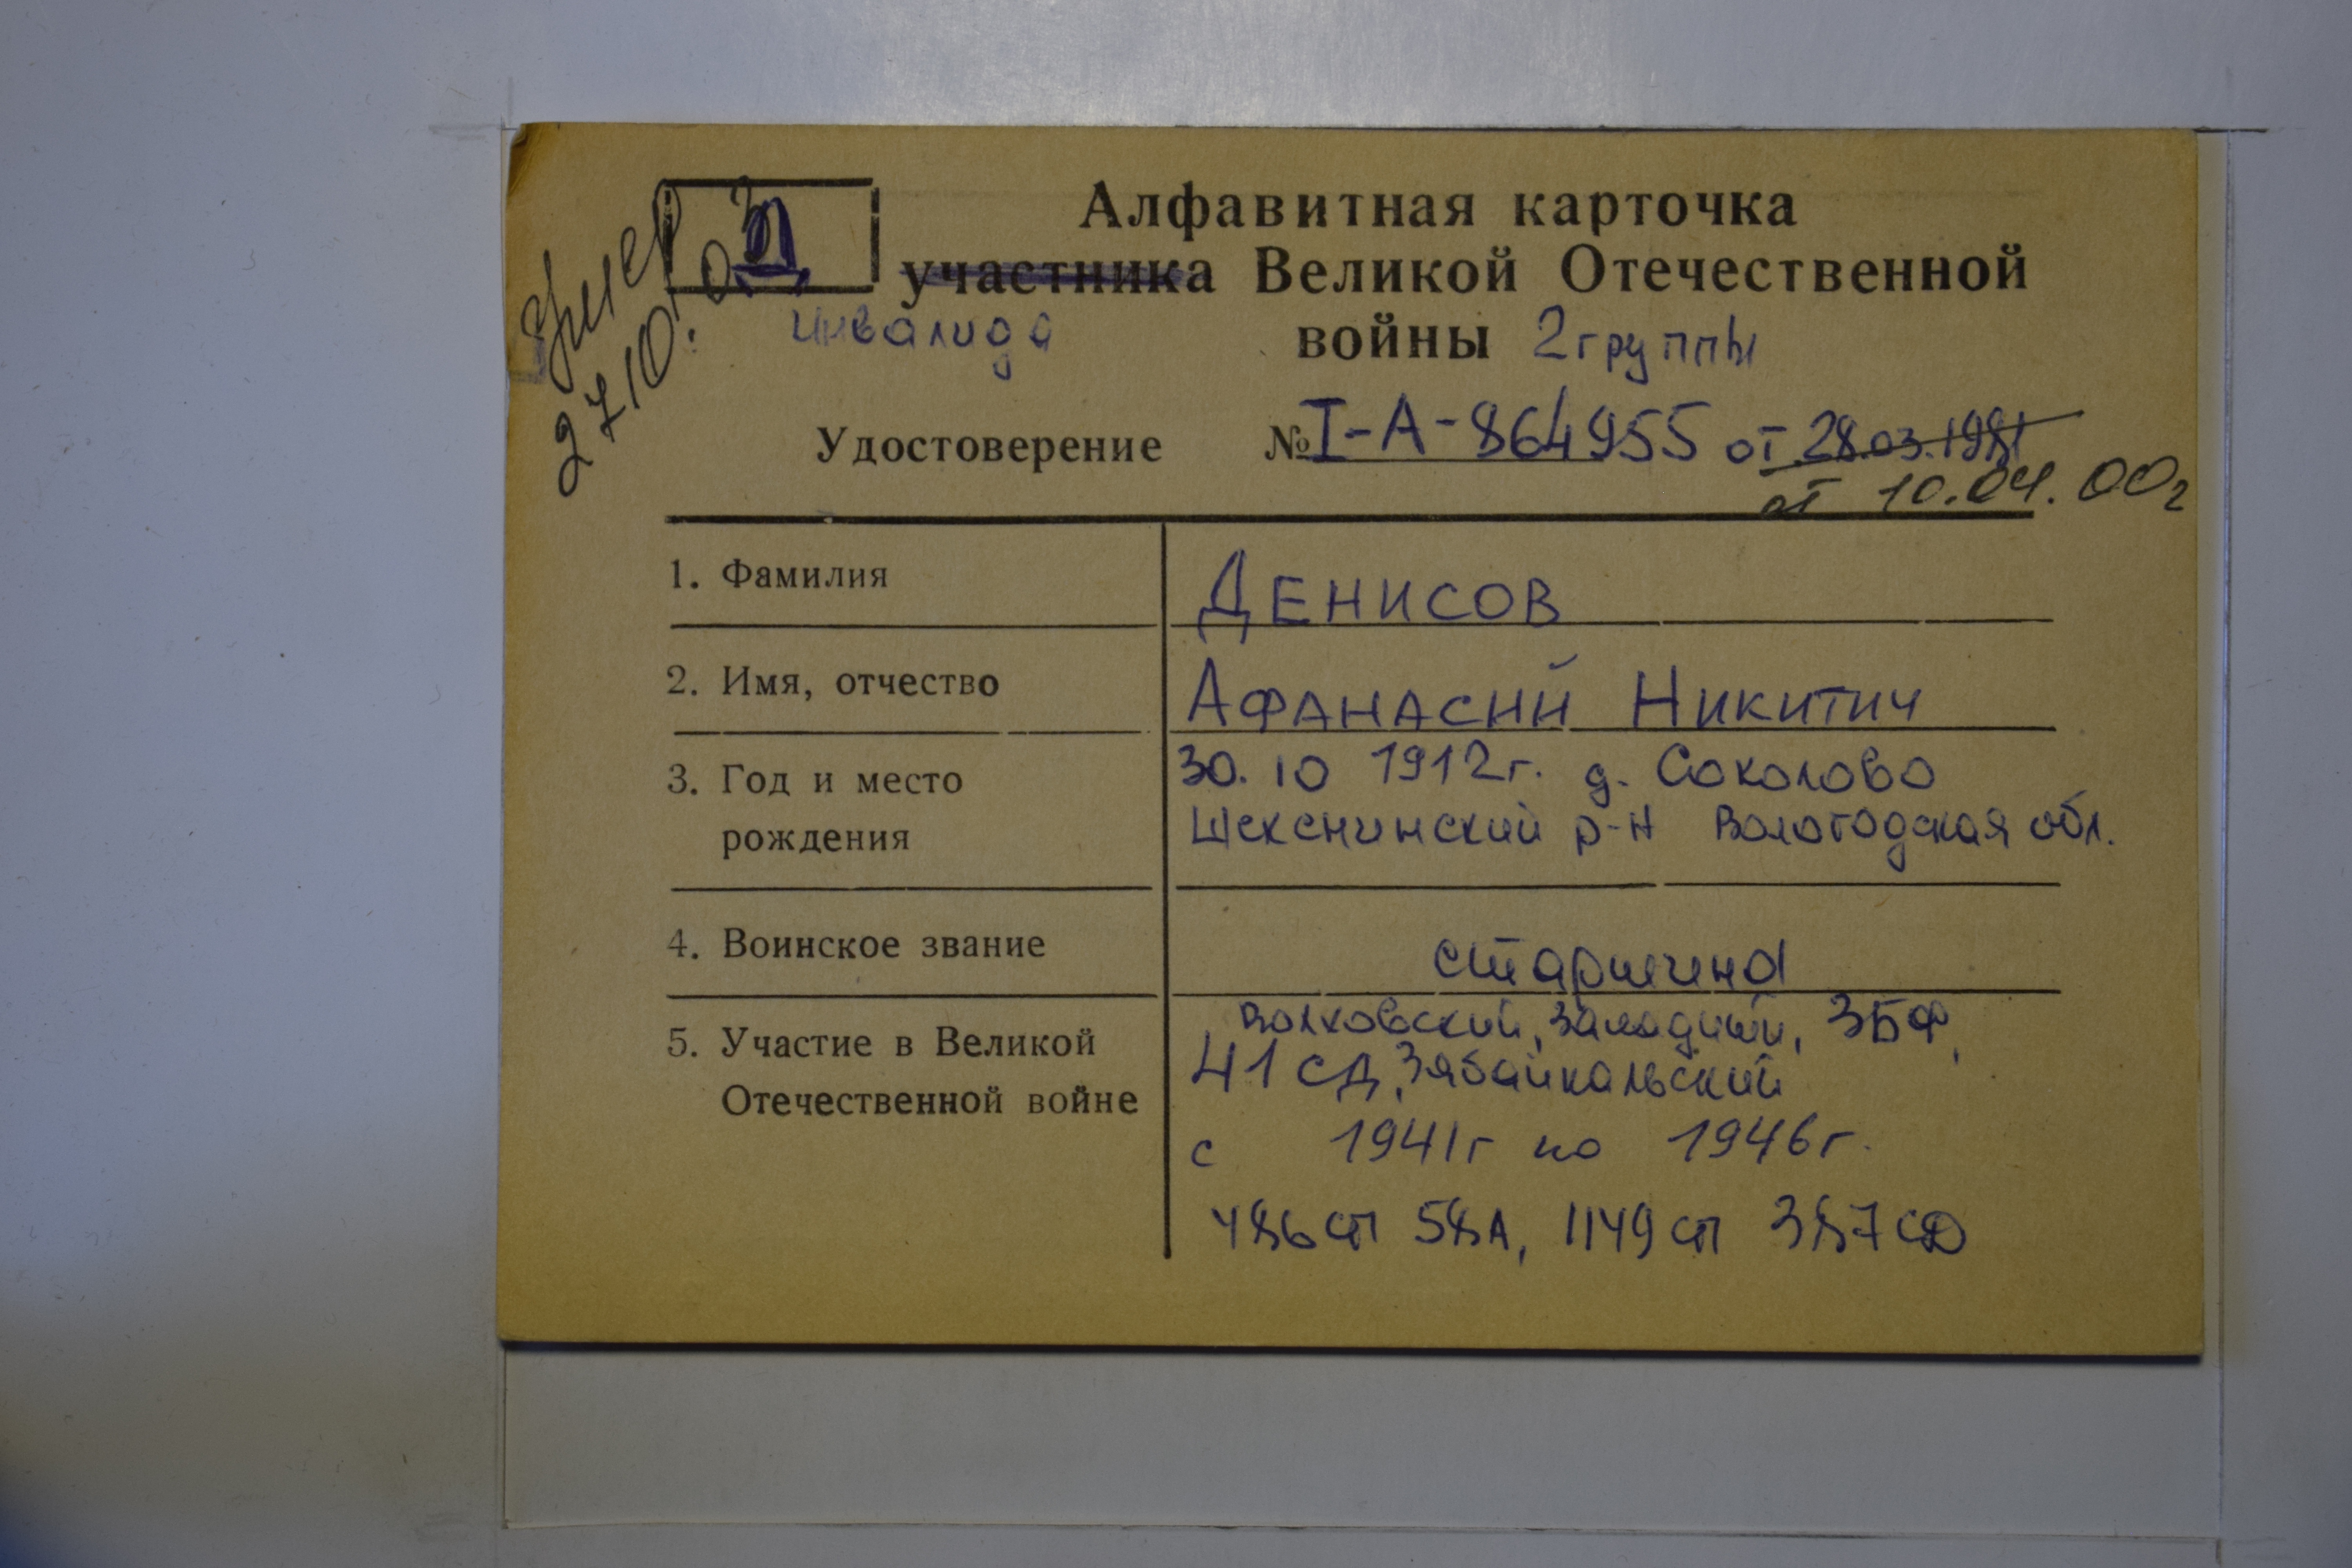 Умер
27.10.03
Д
Алфавитная карточка
участника Великой Отечественной
инвалида войны 2 группы
Удостоверение № I-А-864955 от 28.03.1981
от 10.04.00г
1. Фамилия ДЕНИСОВ
2. Имя, отчество АФАНАСИЙ НИКИТИЧ
3. Год и место 30.10 1912г. д. Соколово
рождения Шекснинский р-н Вологодская обл.
4. Воинское звание старшина
Волховский, Западный, ЗБФ,
5. Участие в Великой 41 СД, Забайкальский
Отечественной войне
с 1941г по 1946г.
486 сп 58А, 1149 сп 387 СД